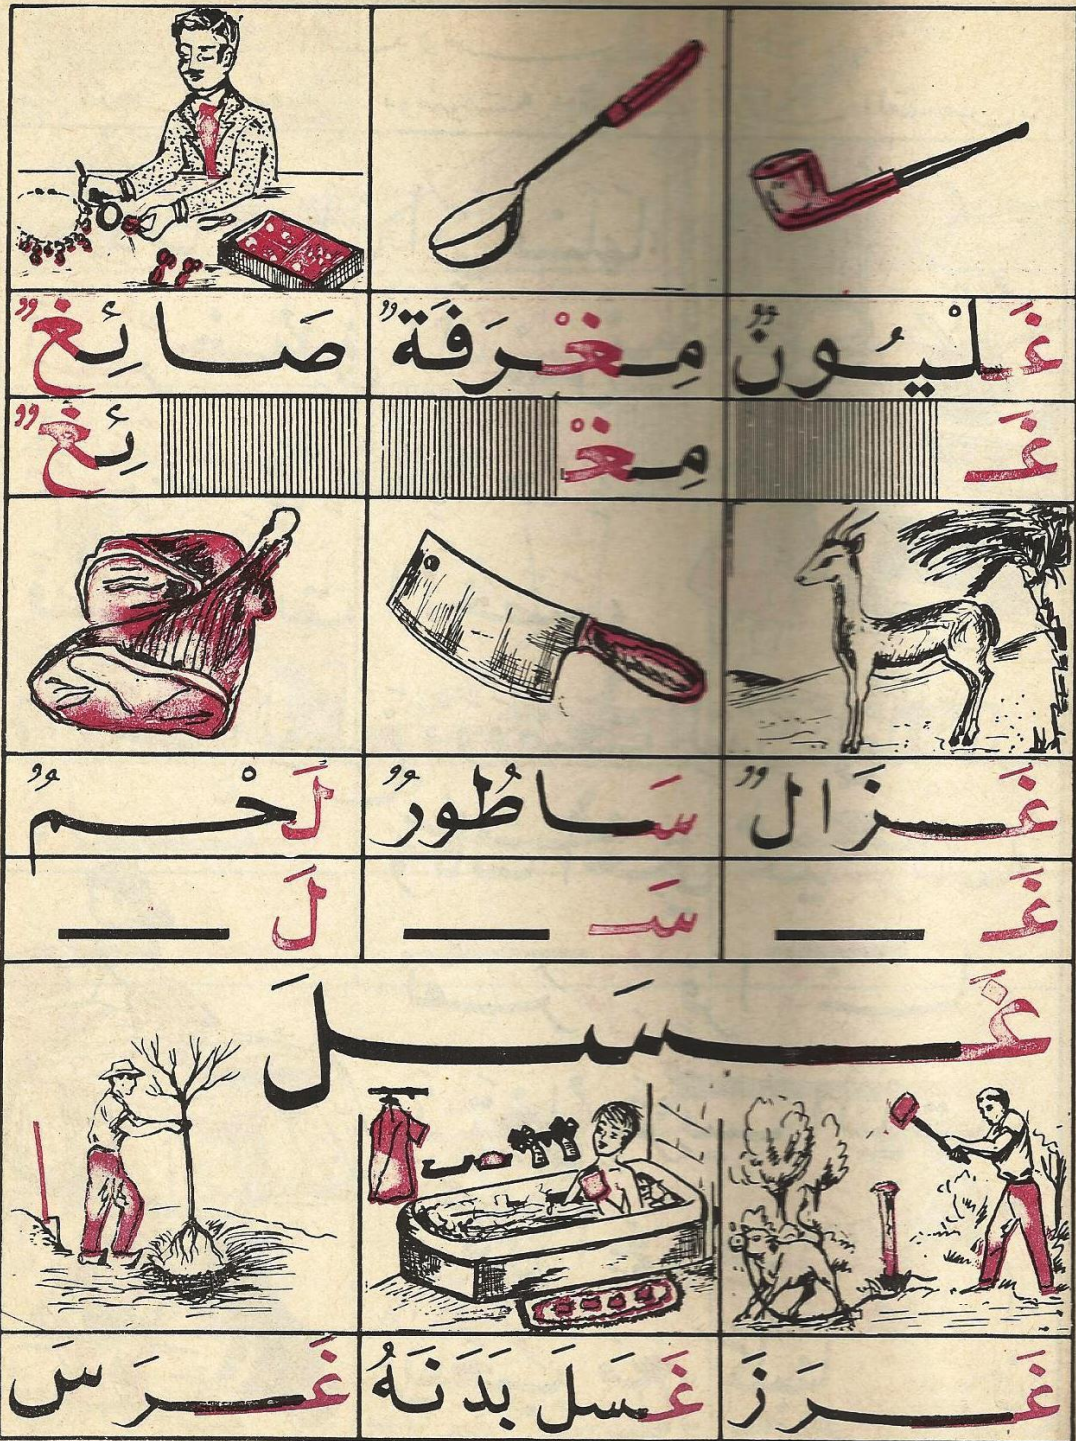 غَلْيُونٌ مِغْرَفَةٌ صَائِغٌ
غَ مِغْ ئِغٌ
غَزَالٌ سَاطُورٌ لَحْمٌ
غَ سَ لَ
غَسَلَ
غَرَزَ غَسَلَ بَدَنَهُ غَرَسَ